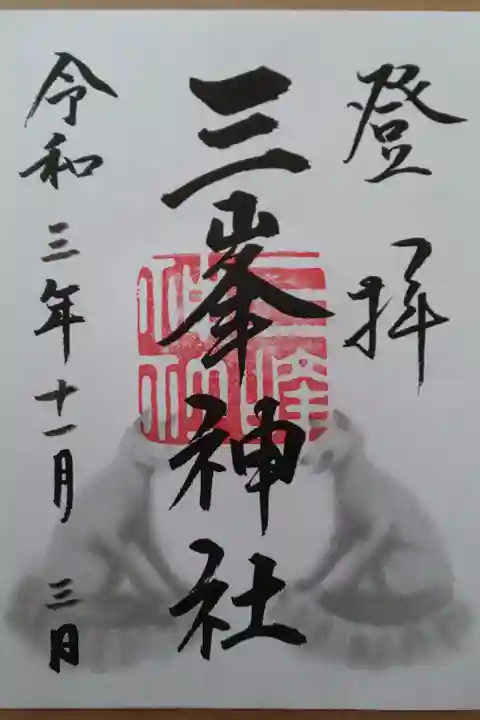 登拝
三峯神社
令和三年十一月三日
三峰神社